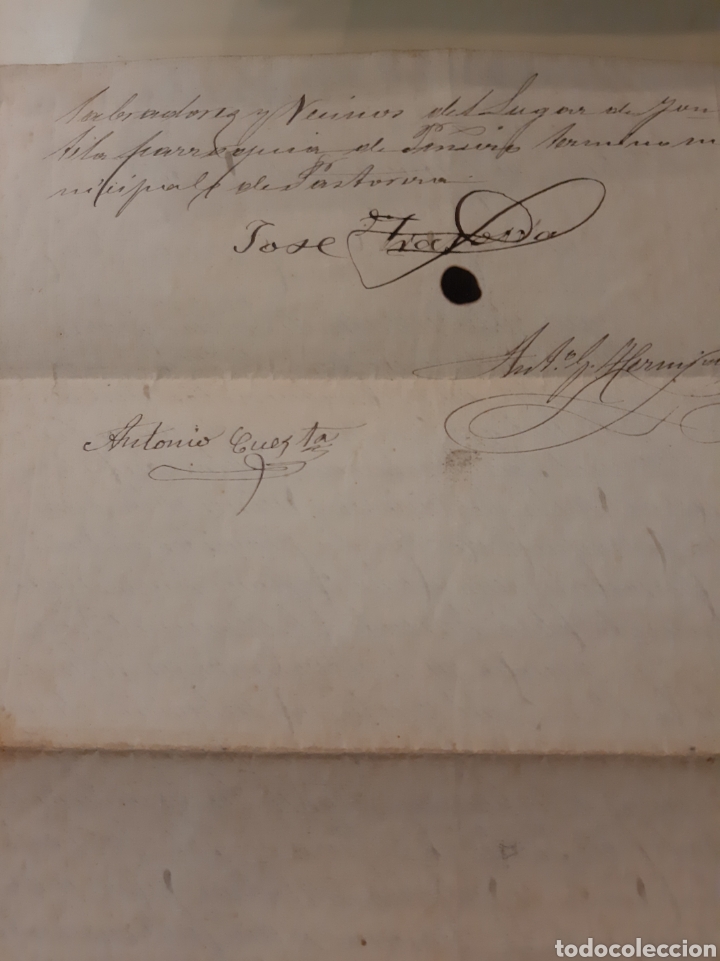 labradores y Vecinos del Lugar de Fon
tela parroquia de Pensiro termino m
nicipal de Pastoriza
Jose
Antº G. Hermi
Antonio Cuesta
todocoleccion